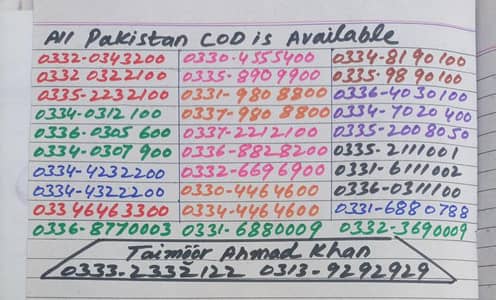 All Pakistan COD is Available
0332-0343200 0330-4555400 0334-8190100
0332 0322100 0335-8909900 0335-9890100
0335-2232100 0331-9808800 0336-4030100
0334-0312100 0337-9808800 0334-7020400
0336-0305600 0337-2212100 0335-2008050
0334-0307900 0336-8828200 0335-2111001
0334-4232200 0332-6696900 0331-6111002
0334-4322200 0330-4464600 0336-0311100
03346463300 0334-4464600 0331-6880788
0336-8770003 0331-6880009 0332-3690009
Taimoor Ahmad Khan
0333-2332122 0313-9292929